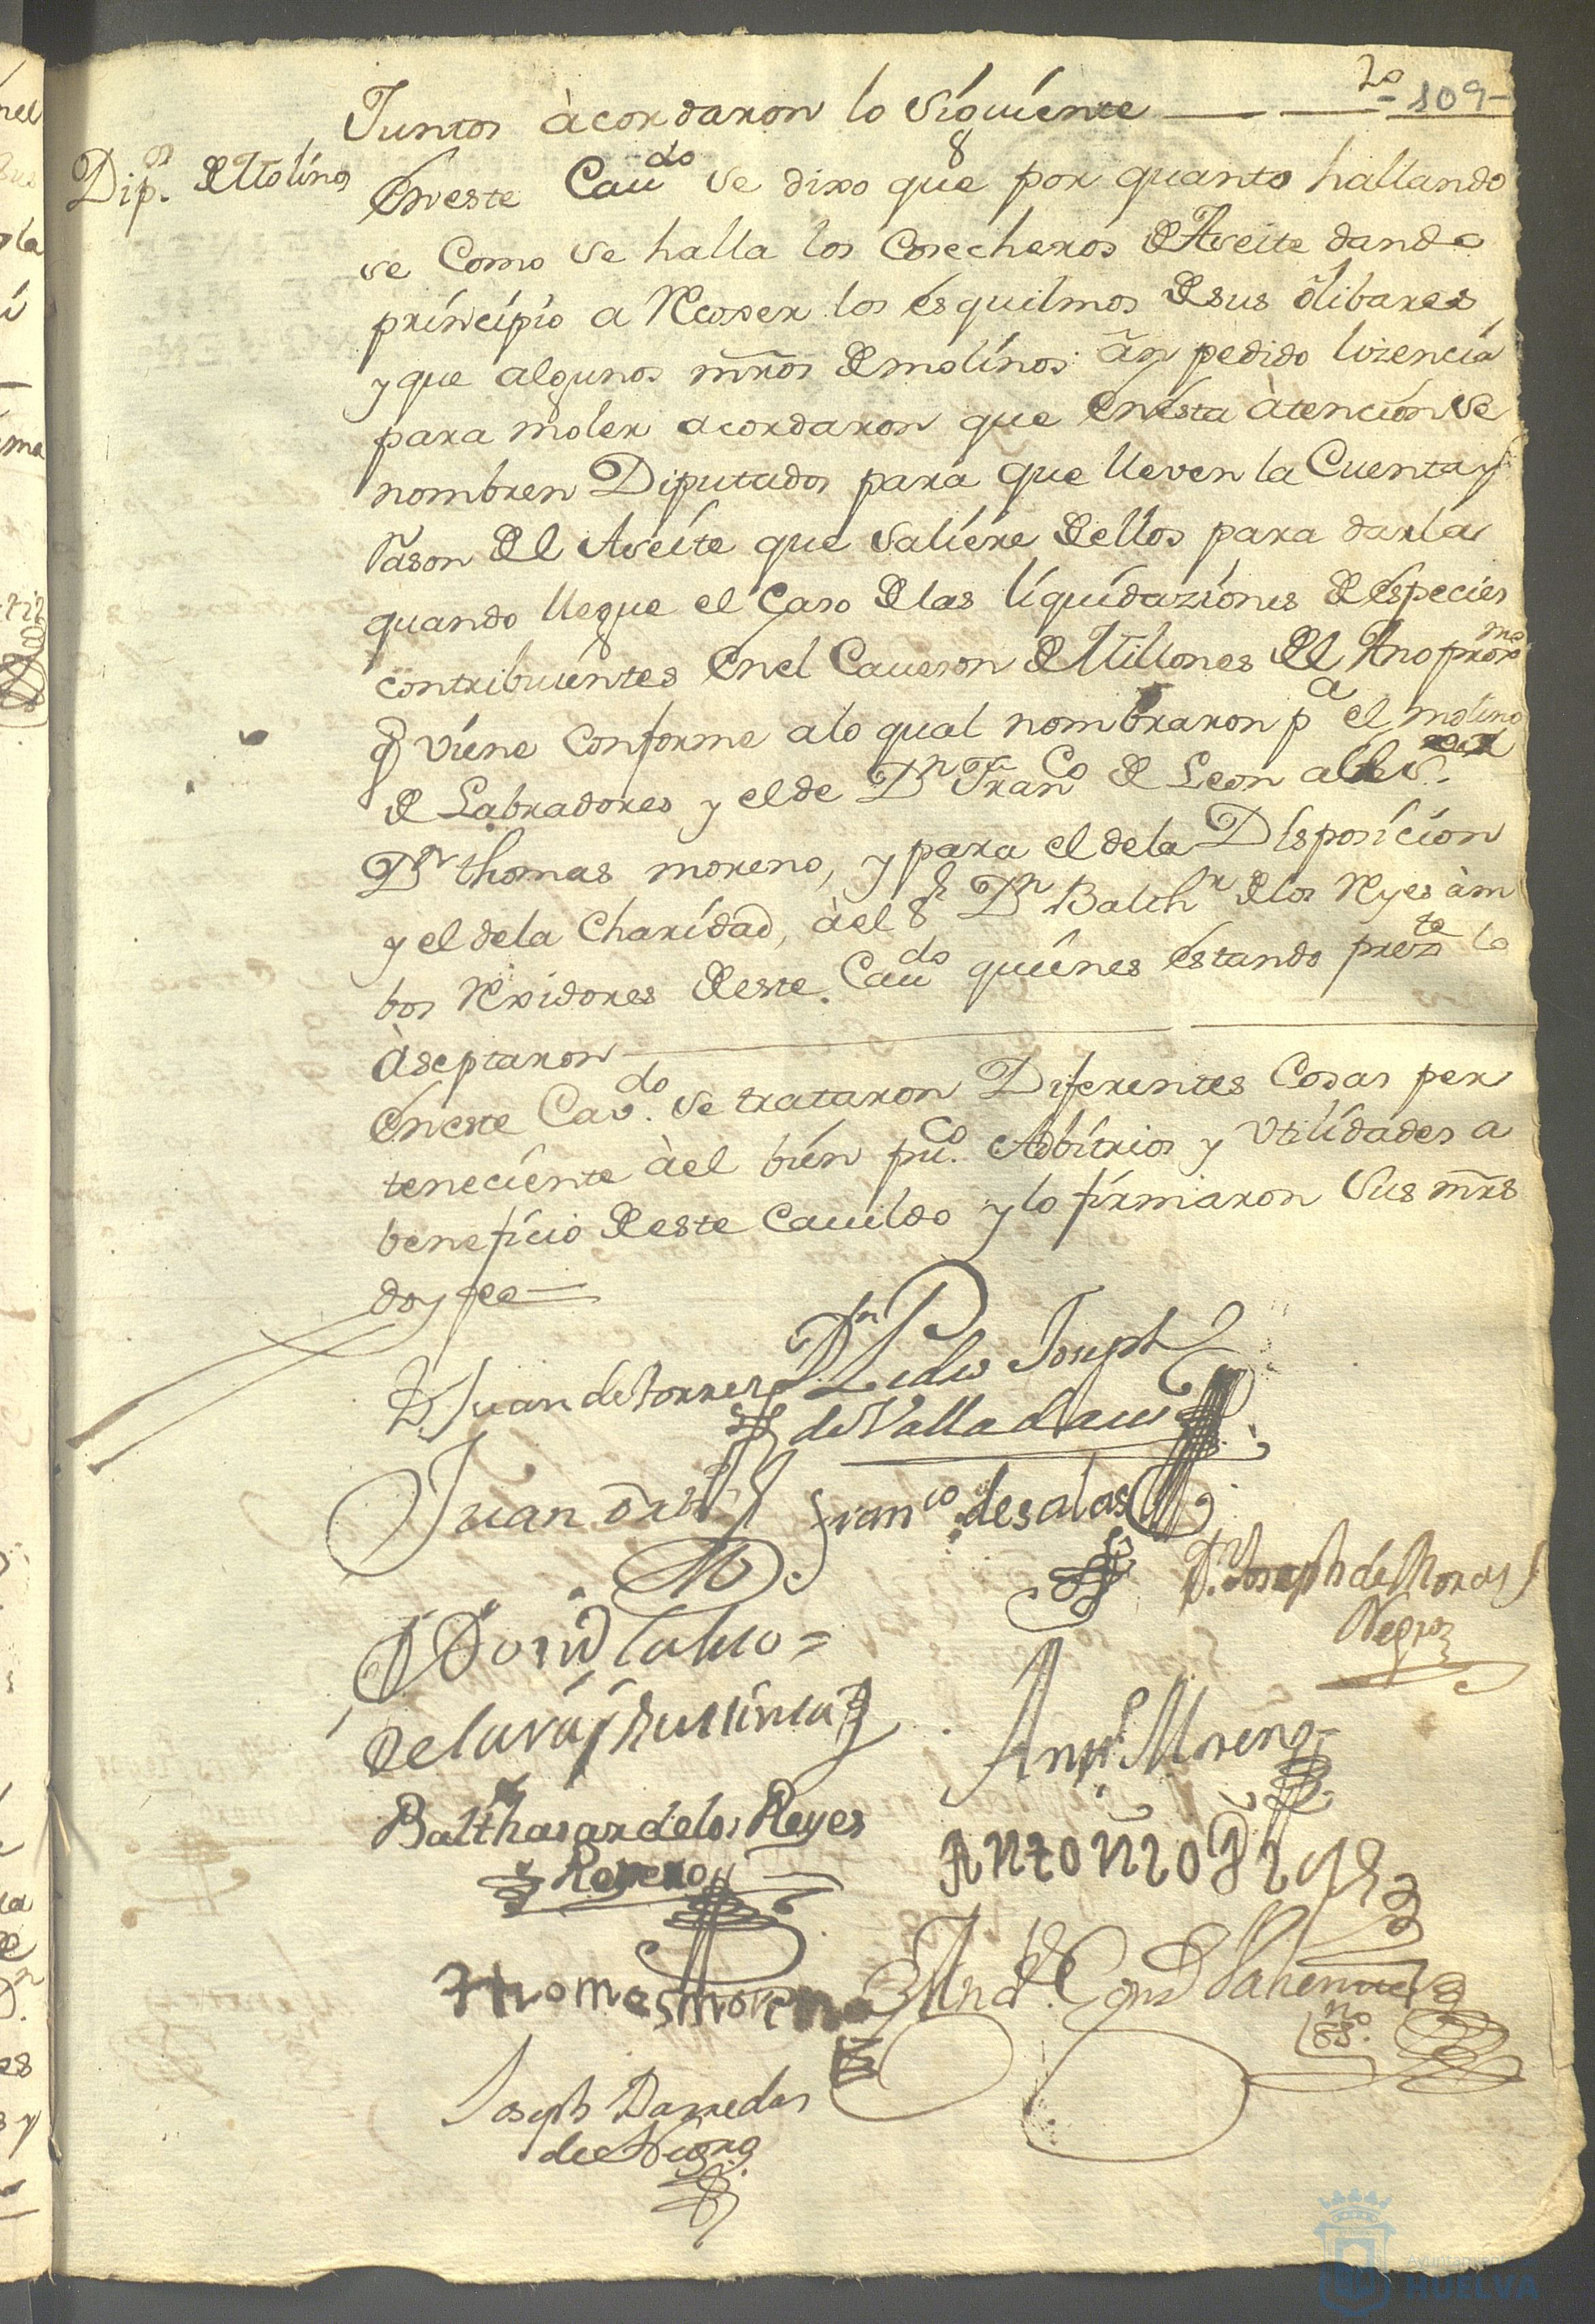 20
-109-
Juntos àcordaron lo siguiente
Dip.os de Molinos
Eneste Caudo se dixo que por quanto hallando
se Como se halla los Cosecheros de Aseite dando
principio a Recoxer los esquilmos de sus olibares
y que algunos mros de molinos an pedido lizencia
para moler acordaron que enesta àtencion se
nombren Diputados para que lleven la Cuenta y
Rason del Aseite que saliere dellos para darla
quando llegue el Caso de las liquidaziones de especies
contribuientes enel Caueson de Millones del Año proxmo
q viene Conforme alo qual nombraron pa el molino
de Labradores y el de Dn Franco de Leon al
Dn thomas moreno, y para el dela Disposicion
y el dela Charidad, àel Sr Dn Balthr de los Reyes àm
bos Rexidores deeste Caudo quienes estando prezte lo
àseptaron
Eneste Cavdo. se trataron Diferentes Cosas per
teneciente àel bien puco. Adbitrios y Utilidades a
beneficio deeste Cauildo y lo firmaron sus mrs
doy fee
D Juan de Torres
Dn Pedro Joseph
de Valladares
Juan Orta
Franco de salas
Dn. Joseph de Moras
Negro
Antto Moreno
Balthasar delos Reyes
Romero
Antonio
Thomas moreno
Valiente
esno.
Joseph Barredas